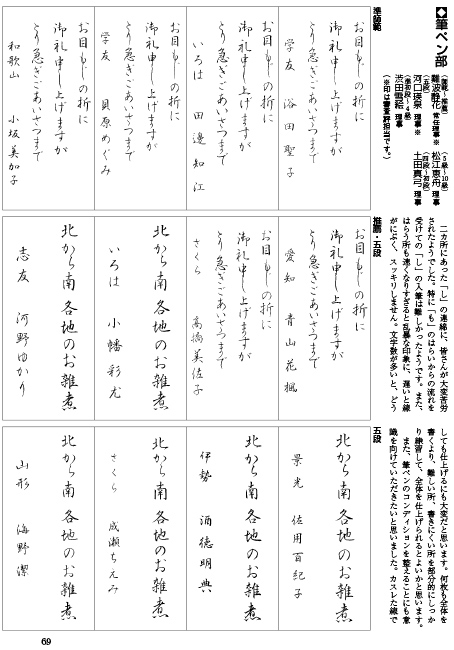 ◆筆ペン部
（師範～推薦）
難波静花 常任理事※
（五段）
河口英泉 理事※
（準初段～4級）
渋田雪絵 理事
（5級～10級）
松江恵舟 理事
（四段～初段）
土田真弓 理事
（※印は審査評担当です。）
準師範
お目もじの折に
御礼申し上げますが
とり急ぎごあいさつまで
学友 谷田聖子
お目もじの折に
御礼申し上げますが
とり急ぎごあいさつまで
いろは 田邊知江
お目もじの折に
御礼申し上げますが
とり急ぎごあいさつまで
学友 貝原めぐみ
お目もじの折に
御礼申し上げますが
とり急ぎごあいさつまで
和歌山 小坂美加子
二カ所にあった「し」の連綿に、皆さんが大変苦労
されたようでした。特に「も」のはらいからの流れを
受けての「し」の入筆は難しかったようです。また、
はらう所も速くなりすぎると乱暴な印象に、遅いと線
がにぶく、スッキリしません。文字数が多いと、どう
推薦・五段
お目もじの折に
御礼申し上げますが
とり急ぎごあいさつまで
愛知 青山花楓
お目もじの折に
御礼申し上げますが
とり急ぎごあいさつまで
さくら 高橋美佐子
北から南 各地のお雑煮
いろは 小幡彩尤
北から南 各地のお雑煮
志友 河野ゆかり
しても仕上げるにも大変だと思います。何枚も全体を
書くより、難しい所、書きにくい所を部分的にしっか
り練習して、全体を仕上げられるとよいかと思います。
また、筆ペンのコンディションを整えることにも意
識を向けていただきたいと思いました。カスレた線で
五段
北から南 各地のお雑煮
景光 佐用百紀子
北から南 各地のお雑煮
伊勢 酒徳明典
北から南 各地のお雑煮
さくら 成瀬ちえみ
北から南 各地のお雑煮
山形 海野潔
69